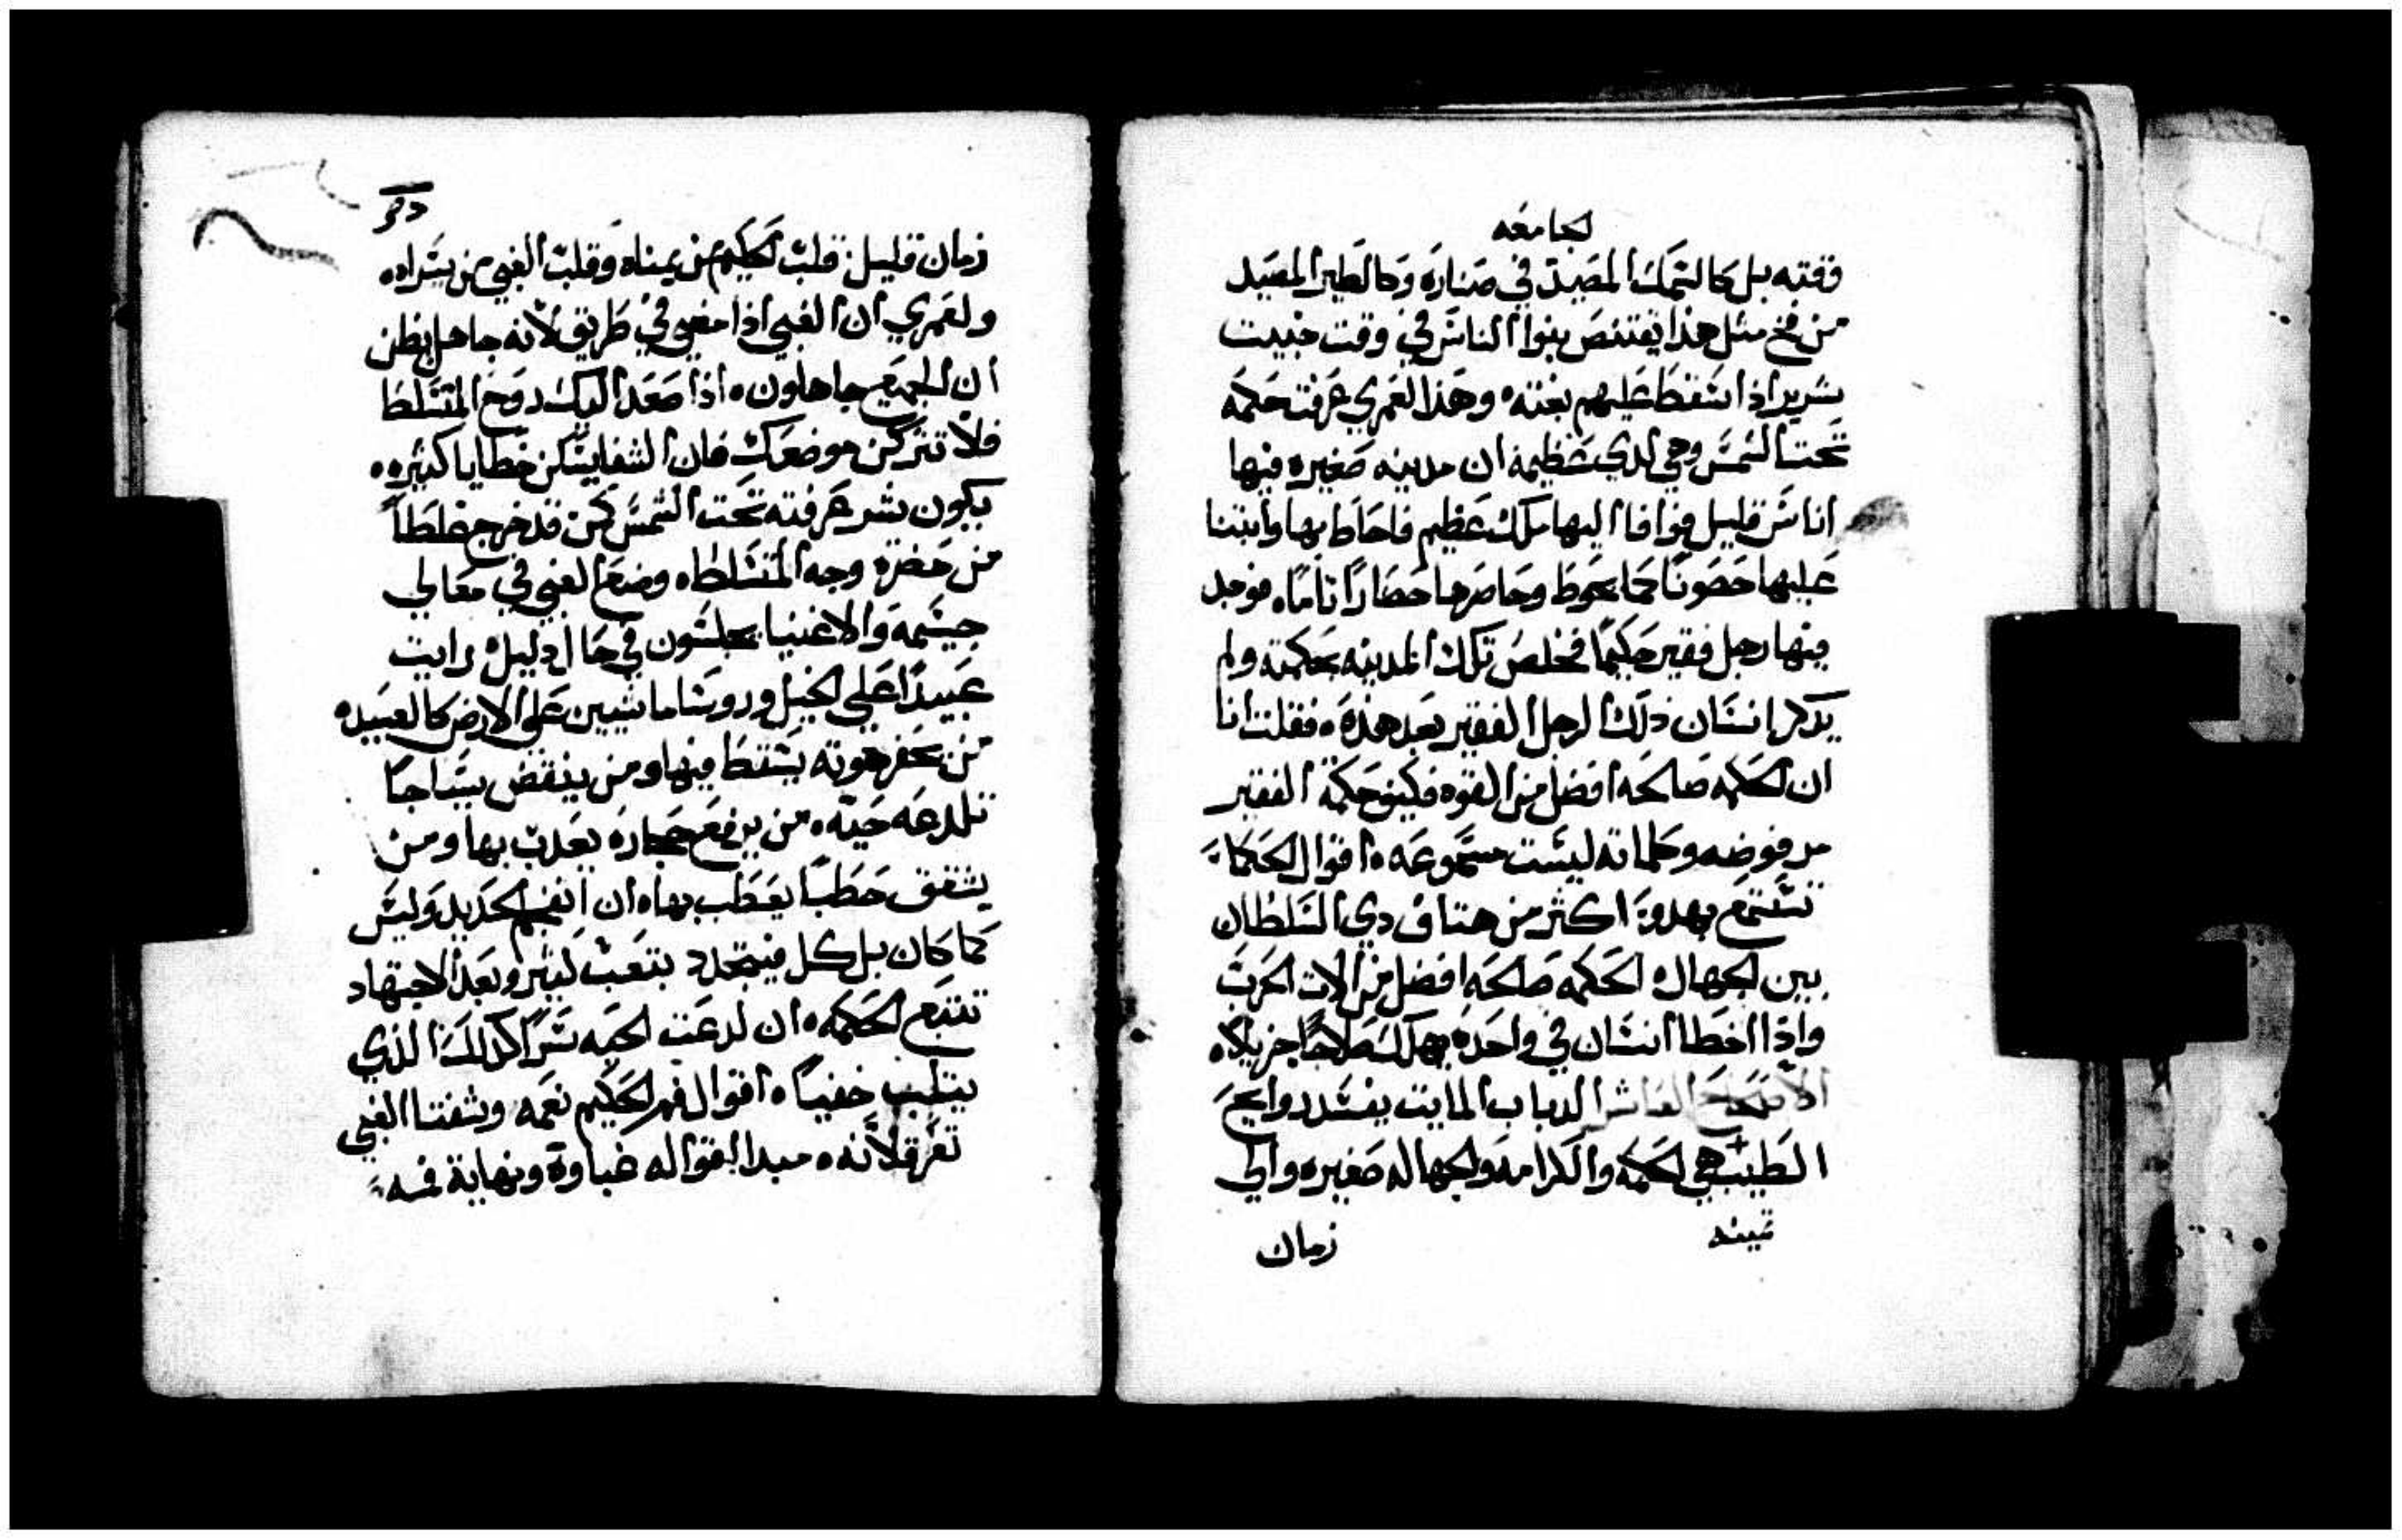 الجامعه
وقته بل كالسمك المصيد في صناره وكالطير المصيد
من فخ مثل هذا يقتنص بنوا الناس في وقت خبيت
شرير اذا سقط عليهم بغته وهذا لعمري عرفت حكمه
تحت الشمس وهي لدي عظيمه ان مدينه صغيره فيها
اناس قليل فوافا اليها ملك عظيم فاحاط بها وابتنا
عليها حصونًا كما يحوط وحاصرها حصارًا تامًا فوجد
فيها رجل فقير حكيمًا فخلص تلك المدينه بحكمته ولم
يدكر انسان دلك الرجل الفقير بعد هذه فقلت انا
ان الحكمه صالحه افضل من القوه فكيف حكمة الفقير
مرفوضه وكلماته ليست مسموعه اقوال الحكماء
تستمع بهدو اكثر من هتاف دي السلطان
بين الجهال الحكمه صالحه افضل من الات الحرب
وادا اخطا انسان في واحده يهلك صلاحًا جزيلاً
الاصحاح العاشر الدباب المايت يفسد روايح
الطيب هي الحكمه والكرامه والجهاله صغيره والي
تبينه
زمان
زمان قليل قلب الحكيم عن يمناه وقلب الغبي عن يسراه
ولعمري ان الغبي اذا مضي في طريق لانه جاهل يظن
ان الجميع جاهلون اذا صعد اليك روح المتسلط
فلا تتركن موضعك فان الشفا يسكن خطايا كبيره
يكون شر عرفته تحت الشمس كمن قد خرج غلطًا
من حضرة وجه المتسلط وضع الغبي في معالي
جسيمه والاغنيا يجلسون في حال دليل رايت
عبيدًا علي الخيل وروسا ماشيين علي الارض كالعبيد
من يحفر هوته يسقط فيها ومن ينقض سياجًا
تلدعه حيه من يرفع حجاره يعدب بها ومن
يشقق حطبًا يعطب بها ان انفجم الحديد وليس
كما كان بل كل فيتجدد بتعب كثير وبعد الاجتهاد
تتبع الحكمه ان لدعت الحيه سرًا كدلك الذي
يتلب خفيًا اقوال فم الحكيم نعمه وشفتا الغبي
تغرقلانه مبدا اقواله غباوة ونهاية فمه